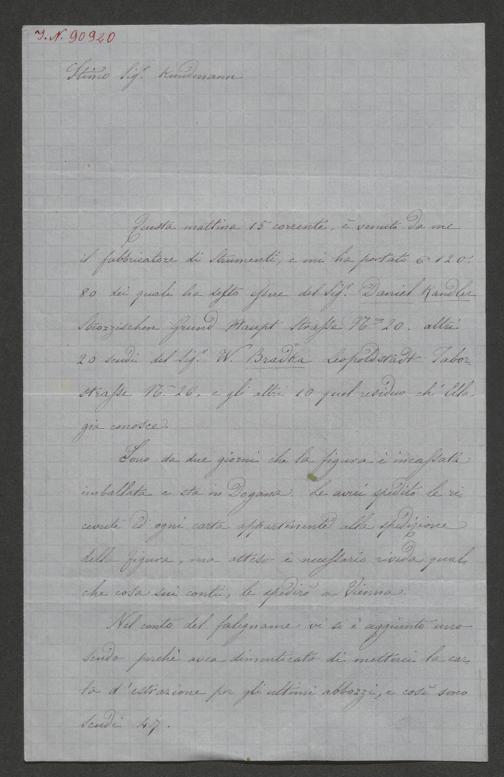 I. N. 90920
Stimo Sigr. Kundmann
Questa mattina 15 corrente, è venuto da me
il fabbricatore di Strumenti, e mi ha portato 120:
80 dei quali ha del Sigr. Daniel Kandler
Strozzischen Grund Haupt Strasse No. 20. altri
20 scudi del Sigr. W. Bradka Leopoldstadt Tabor-
strasse No. 26, e gli altri 10 qual residuo ch' Ella
già conosce.
Sono da due giorni che la figura è incassata
imballata e sta in Dogana. Le avrei spedito le ri
cevute ed ogni carta appartenente alla spedizione
della figura, ma atteso è necessario rivida qual-
che cosa sui conti, le spedirò a Vienna.
Nel conto del falegname vi si è aggiunto uno
scudo perchè avea dimenticato di metterci la car-
ta d'estrazione per gli ultimi abbozzi, e così sono
scudi 47.